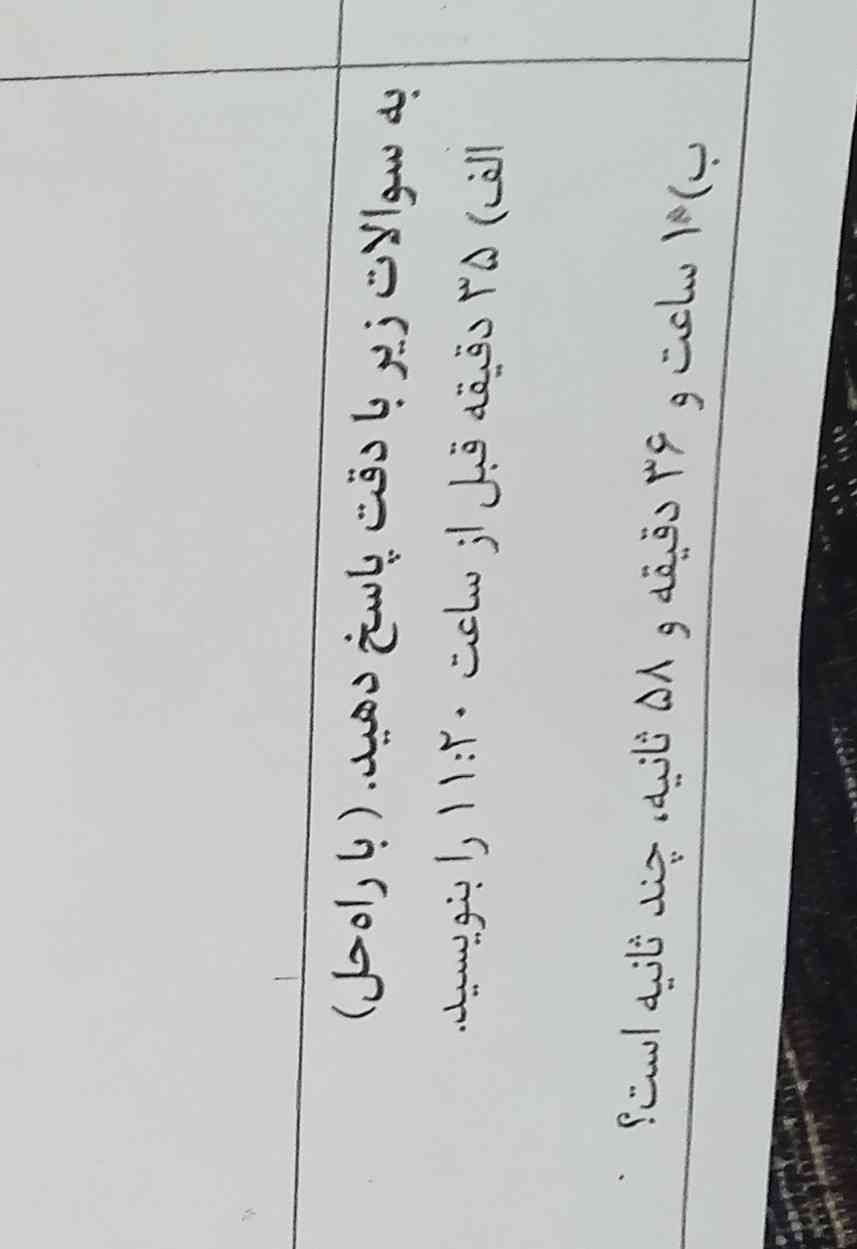 به سوالات زیر با دقت پاسخ دهید. (با راه‌حل)
الف) ۳۵ دقیقه قبل از ساعت ۱۱:۲۰ را بنویسید.
ب) ۱ ساعت و ۳۶ دقیقه و ۵۸ ثانیه، چند ثانیه است؟